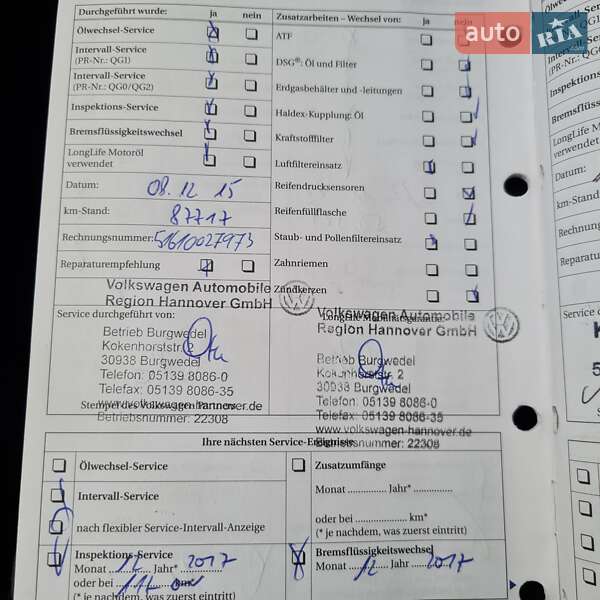 Durchgeführt wurde: ja nein
Zusatzarbeiten – Wechsel von: ja nein
Ölwechsel-Service
ATF
Intervall-Service
(PR-Nr.: QG1)
DSG®: Öl und Filter
Intervall-Service
(PR-Nr.: QG0/QG2)
Erdgasbehälter und -leitungen
Inspektions-Service
Haldex-Kupplung: Öl
Bremsflüssigkeitswechsel
Kraftstofffilter
LongLife Motoröl
verwendet
Luftfiltereinsatz
Datum: 08.12 15
Reifendrucksensoren
km-Stand: 87717
Reifenfüllflasche
Rechnungsnummer: 51610027973
Staub- und Pollenfiltereinsatz
Reparaturempfehlung
Zahnriemen
Zündkerzen
Volkswagen Automobile
Region Hannover GmbH
Service durchgeführt von:
Betrieb Burgwedel
Kokenhorststr. 2
30938 Burgwedel
Telefon: 05139 8086-0
Telefax: 05139 8086-35
www.volkswagen-hannover.de
Stempel des Volkswagen Partners
Betriebsnummer: 22308
Volkswagen Automobile
Region Hannover GmbH
Betrieb Burgwedel
Kokenhorststr. 2
30938 Burgwedel
Telefon: 05139 8086-0
Telefax: 05139 8086-35
www.volkswagen-hannover.de
Betriebsnummer: 22308
Ihre nächsten Service-Ereignisse
Ölwechsel-Service
Zusatzumfänge
Intervall-Service
Monat ............... Jahr* ...............
nach flexibler Service-Intervall-Anzeige
oder bei ............... km*
(* je nachdem, was zuerst eintritt)
Inspektions-Service
Monat 12 Jahr* 2017
oder bei
(* je nachdem, was zuerst eintritt)
Bremsflüssigkeitswechsel
Monat 12 Jahr 2017
auto RIA